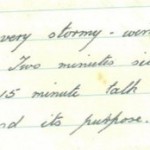 very stormy - wen
Two minutes si
15 minute talk
nd its purpose.